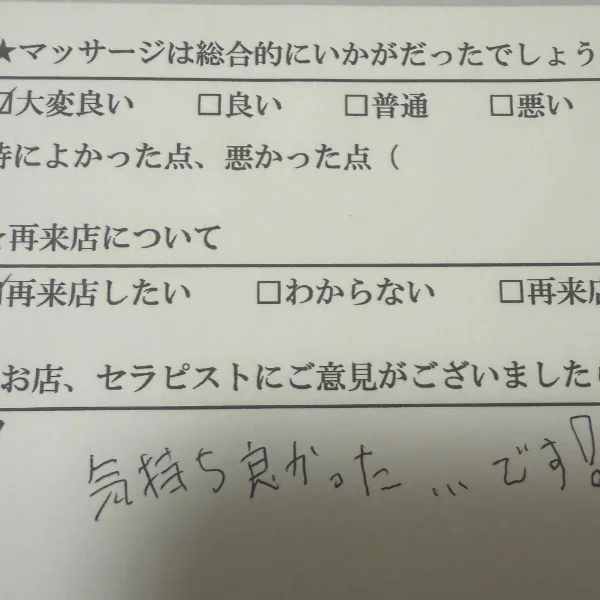 ★マッサージは総合的にいかがだったでしょう
☑大変良い □良い □普通 □悪い
特によかった点、悪かった点（
★再来店について
☑再来店したい □わからない □再来店
お店、セラピストにご意見がございましたら
気持ち良かった…です!